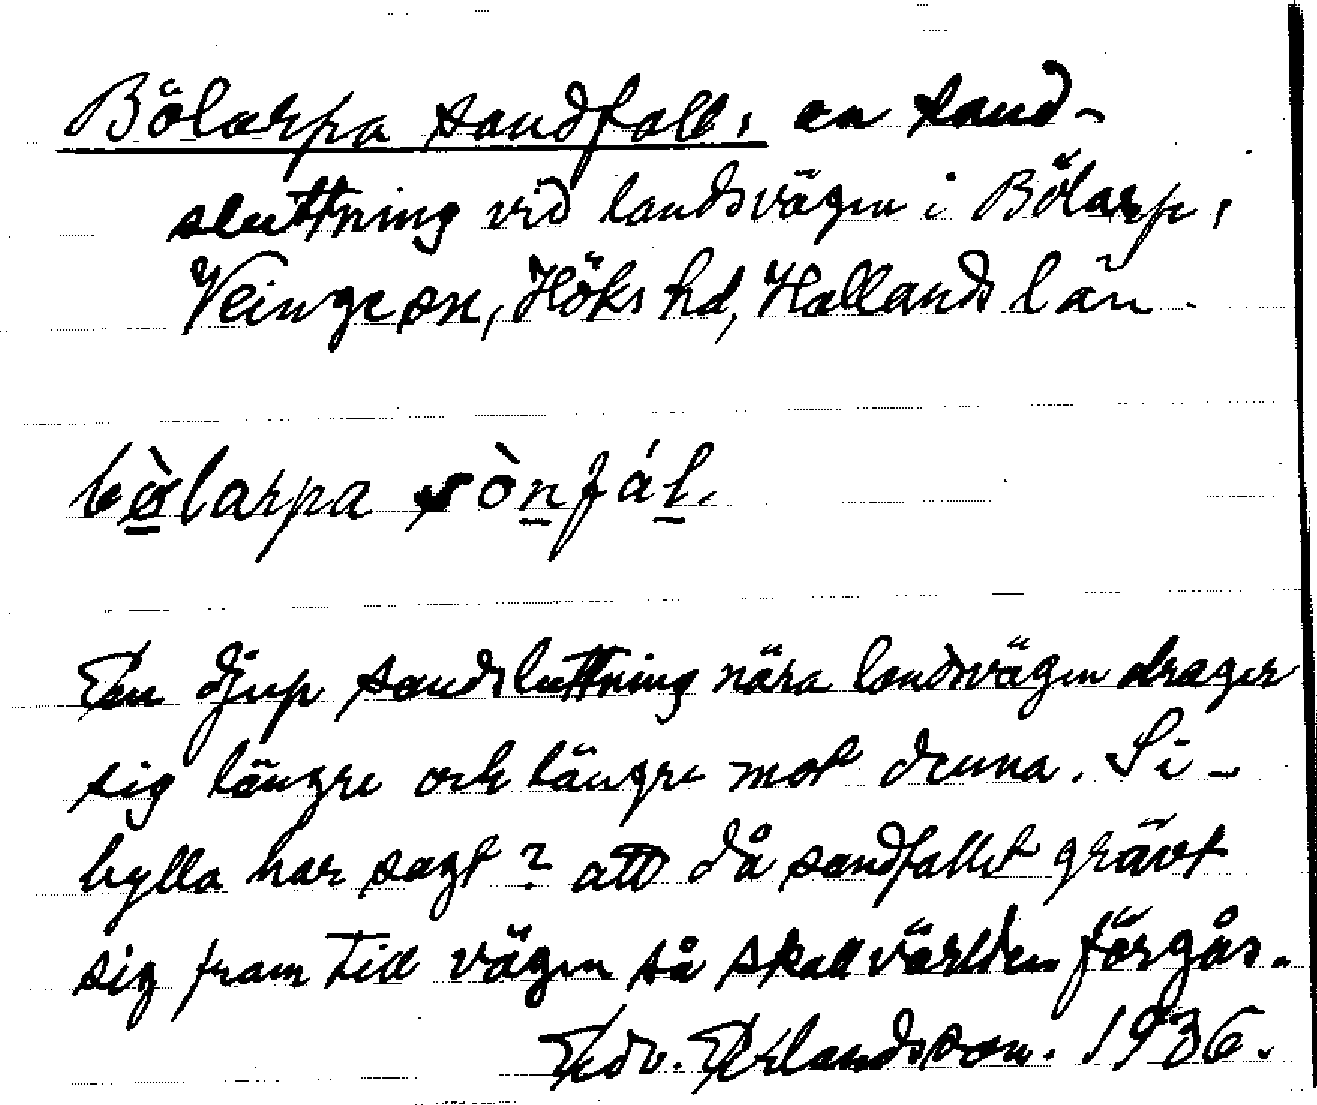 Bölarpa sandfall, en sand-
sluttning vid landsvägen i Bölarp,
Veinge sn, Höks hd, Hallands län.
bø̀larpa sònfál.
En djup sandsluttning nära landsvägen drager
sig längre och längre mot denna. Si-
bylla har sagt? att då sandfallet grävt
sig fram till vägen så skall världen förgås.
Edv. Erlandsson. 1936.